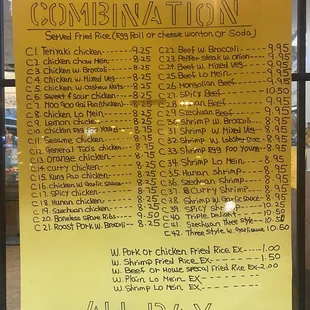 COMBINATION
Served Fried Rice (Egg Roll or Cheese Wonton or Soda)
C1 Teriaki chicken 9.25
C2 chicken chow mein 8.25
C3 chicken w. Broccoli 8.25
C4 chicken w. mixed veg 8.25
C5 chicken w. cashew nuts 8.25
C6 Sweet & Sour chicken 8.25
C7 Moo goo Gai Pan (chicken) 8.25
C8 chicken Lo mein 8.25
C9 Lemon chicken
C10 chicken egg Foo Young
C11 Sesame chicken 8.75
C12 General Tso's chicken
C13 orange chicken
C14 curry chicken 8.25
C15 Kung Pao chicken 8.25
C16 chicken w. garlic sauce 8.25
C17 chicken 8.25
C18 Hunan chicken 8.25
C19 Szechuan chicken 8.25
C20 Boneless Spare Ribs 9.50
C21 Roast Pork w. Broccoli 8.25
C22 Beef w. Broccoli 9.95
C23 Pepper steak w. onion 9.95
C24 Beef w. mixed veg 9.95
C25 Beef Lo mein 9.95
C26 mongolian Beef
C27 Spicy Beef 10.50
C28 Beef 9.95
C29 Szechuan Beef 9.95
C30 Shrimp w. Broccoli 9.95
C31 Shrimp w. mixed veg 9.95
C32 Shrimp w. Lobster sauce 9.95
C33 Shrimp egg Foo Young 9.95
C34 Shrimp Lo mein 9.95
C35 Hunan Shrimp 9.95
C36 Szechuan Shrimp 9.95
C37 Curry Shrimp 9.95
C38 Shrimp w. garlic sauce 9.95
C39 Spicy Shrimp
C40 Triple Delight 10.50
C41 Szechuan Three Style 10.50
C42 Three Style w. garlic sauce 10.50
w. Pork or chicken Fried Rice Ex 1.00
w. Shrimp Fried Rice Ex 1.50
w. Beef or House Special Fried Rice Ex 2.00
w. Plain Lo mein Ex
w. Shrimp Lo mein Ex
ALL DAY